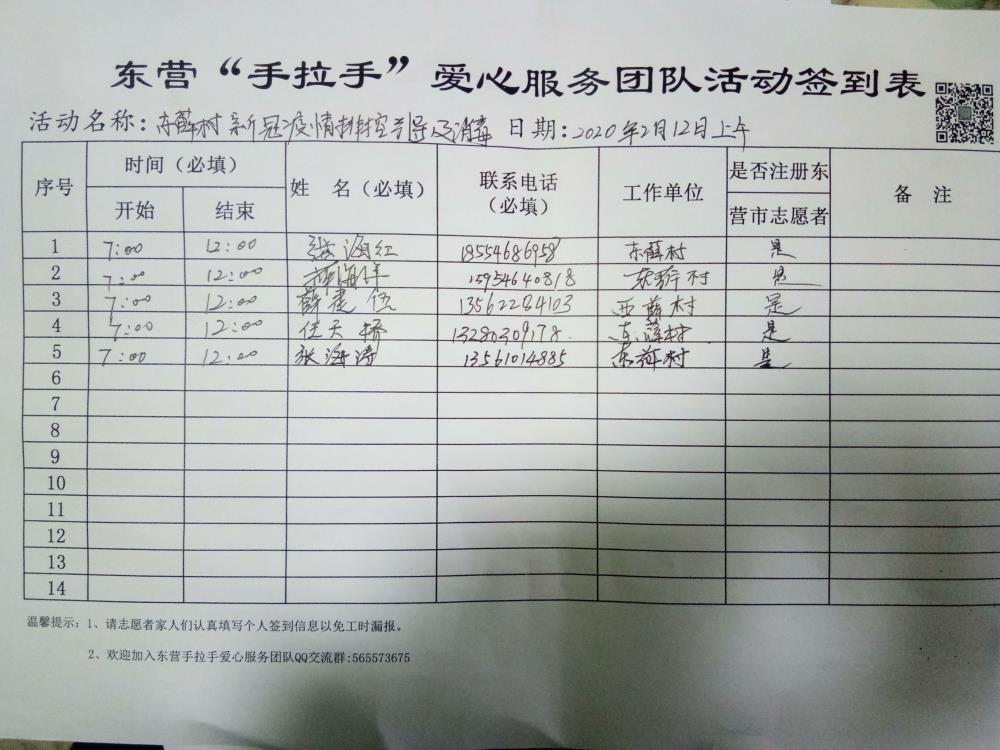 东营“手拉手”爱心服务团队活动签到表
活动名称：东薛村新冠疫情排控劝导及消毒 日期：2020年2月12日上午
序号 时间（必填） 姓 名（必填） 联系电话（必填） 工作单位 是否注册东营市志愿者 备 注
开始 结束
1 7:00 12:00 张海红 18554686958 东薛村 是
2 7:00 12:00 海洋 15954640818 东薛村 是
3 7:00 12:00 薛建伍 13562284103 西薛村 是
4 7:00 12:00 任天桥 13280309178 东薛村 是
5 7:00 12:00 张海涛 13561014885 东薛村 是
6
7
8
9
10
11
12
13
14
温馨提示：1、请志愿者家人们认真填写个人签到信息以免工时漏报。
2、欢迎加入东营手拉手爱心服务团队QQ交流群:565573675